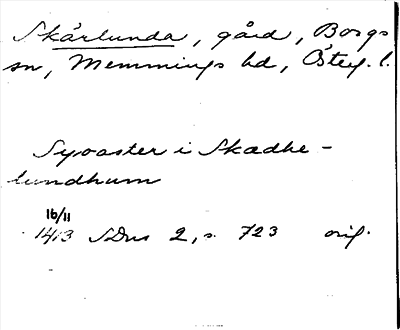 Skärlunda, gård, Borgs
sn, Memmings hd, Östeg. l.
Syvaster i Skadhe-
lundhum
16/11
1413 SDns 2, s. 723 orig.